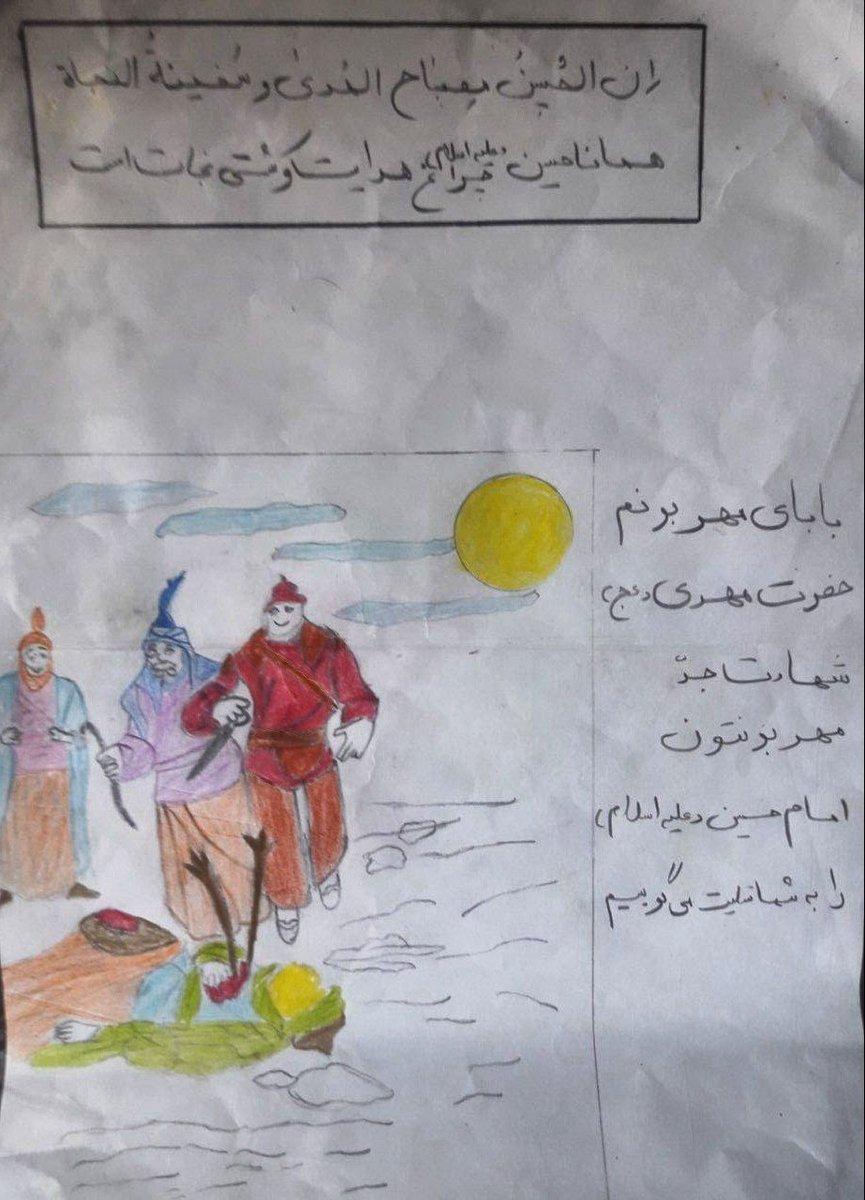 ان الحُسینُ مِصباح الهُدیٰ و سَفینةُ النجاة
همانا حسین (علیه السلام) چراغ هدایت و کشتی نجات است
بابای مهربونم
حضرت مهدی (عج)
شهادت جدّ
مهربونتون
امام حسین (علیه السلام)
را به شما تسلیت می‌گوییم